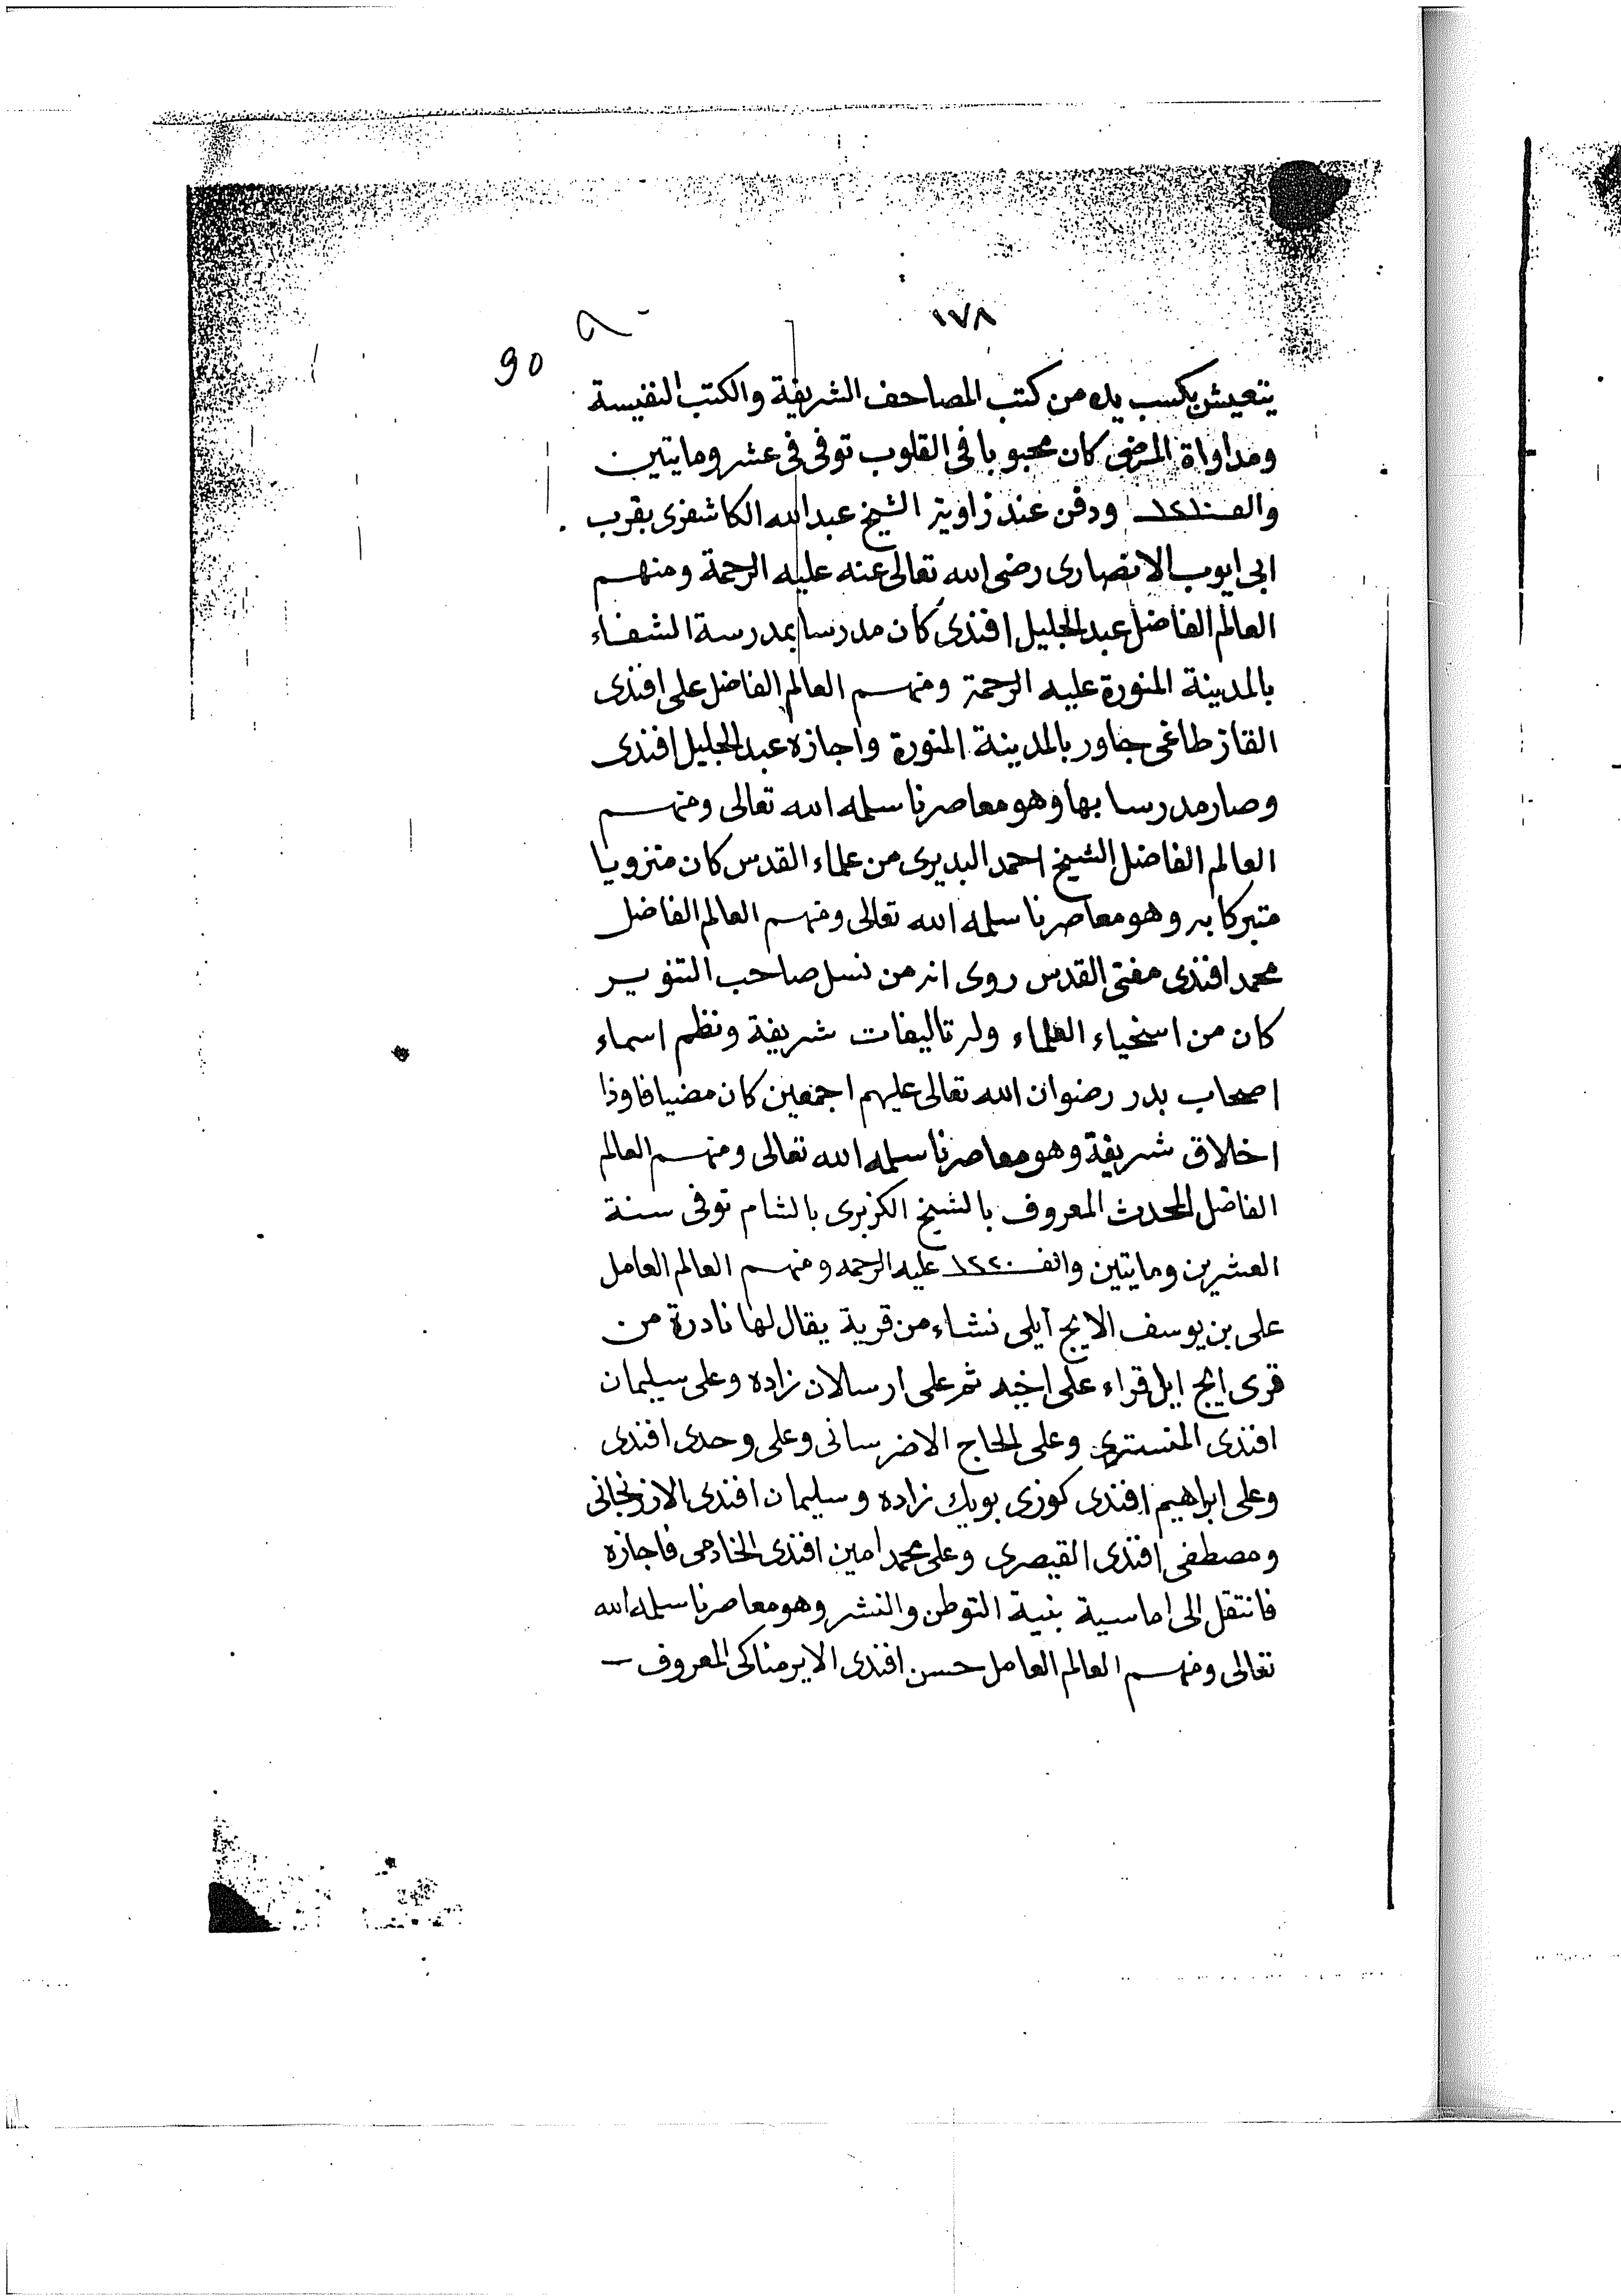 ١٧٨
90
يتعيش بكسب يده من كتب المصاحف الشريفة والكتب النفيسة
ومداواة المرضى كان محبوبا فى القلوب توفى فى عشر ومايتين
والف ١٢١٠ ودفن عند زاوية الشيخ عبد الله الكاشغرى بقرب
ابى ايوب الانصارى رضى الله تعالى عنه عليه الرحمة ومنهم
العالم الفاضل عبد الجليل افندى كان مدرسا بمدرسة الشفاء
بالمدينة المنورة عليه الرحمة ومنهم العالم الفاضل على افندى
القازطاغى جاور بالمدينة المنورة واجازه عبد الجليل افندى
وصار مدرسا بها وهو معاصرنا سلمه الله تعالى ومنهم
العالم الفاضل الشيخ احمد البديرى من علماء القدس كان منزويا
متبركا به وهو معاصرنا سلمه الله تعالى ومنهم العالم الفاضل
محمد افندى مفتى القدس روى انه من نسل صاحب التنوير
كان من اسخياء العلماء وله تاليفات شريفة ونظم اسماء
اصحاب بدر رضوان الله تعالى عليهم اجمعين كان مضيافا وذا
اخلاق شريفة وهو معاصرنا سلمه الله تعالى ومنهم العالم
الفاضل المحدث المعروف بالشيخ الكزبرى بالشام توفى سنة
العشرين ومايتين والف ١٢٢٠ عليه الرحمه ومنهم العالم العامل
على بن يوسف الايج ايلى نشاء من قرية يقال لها نادرة من
قرى ايج ايل قراء على اخيه ثم على ارسالان زاده وعلى سيليمان
افندى المنسترى وعلى الحاج الاضرسانى وعلى وحدى افندى
وعلى ابراهيم افندى كوزى بويك زاده وسليمان افندى الارزنجانى
ومصطفى افندى القيصرى وعلى محمد امين افندى الخادمى فاجازه
فانتقل الى اماسية بنية التوطن والنشر وهو معاصرنا سلمه الله
تعالى ومنهم العالم العامل حسن افندى الايرمناكى المعروف